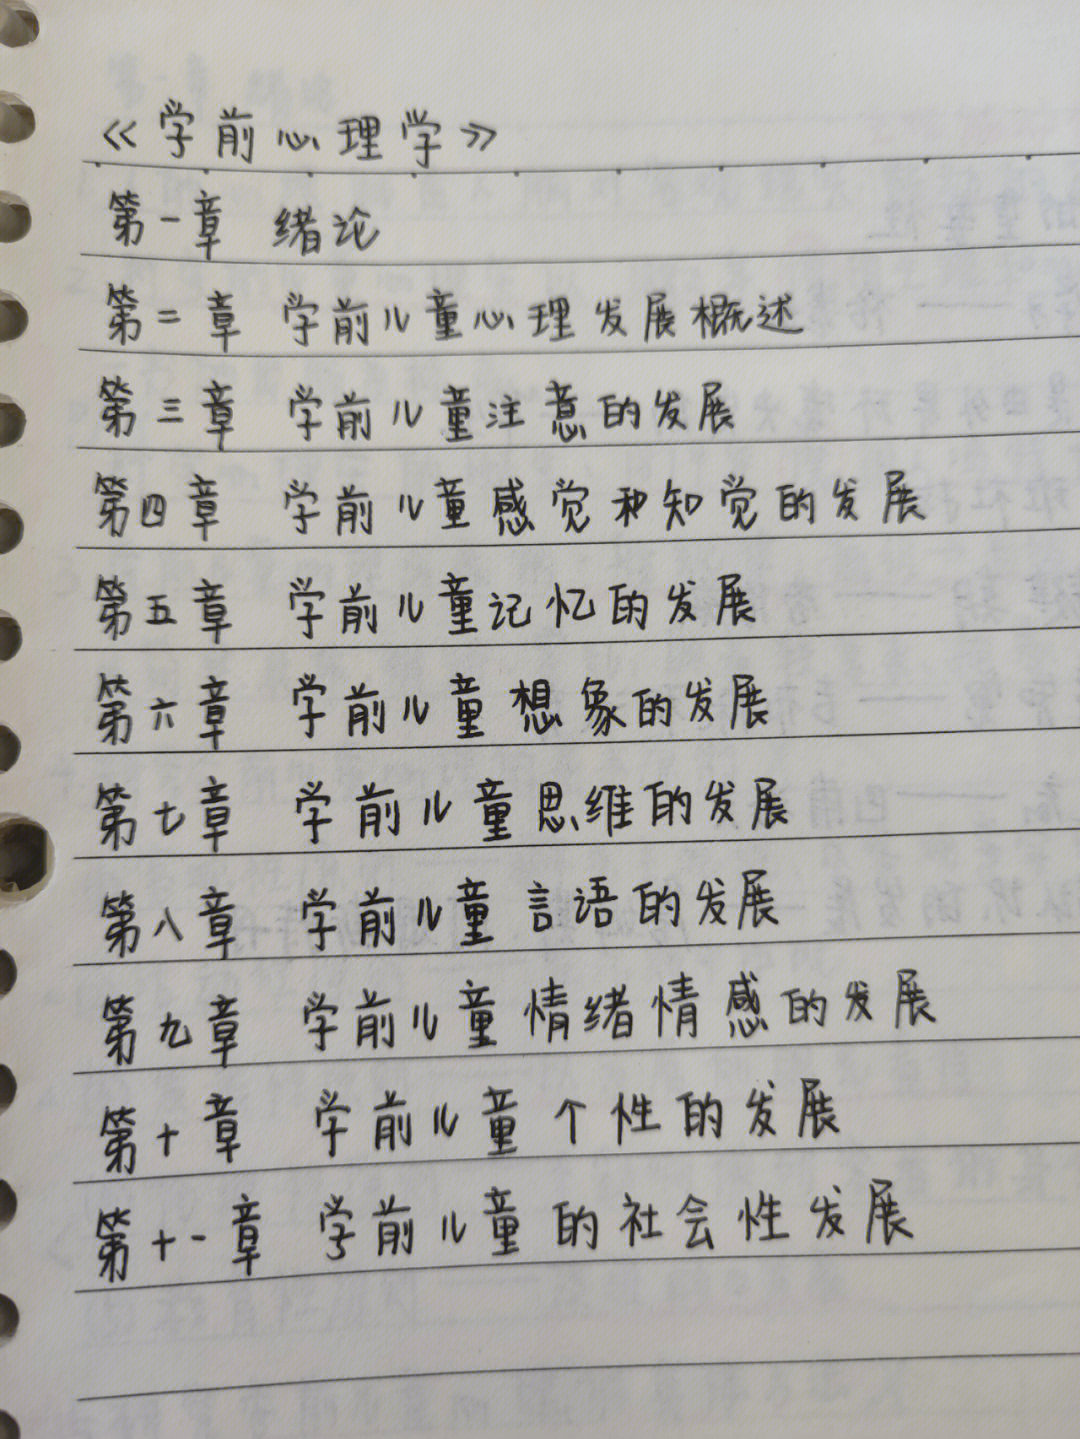 《学前心理学》
第一章 绪论
第二章 学前儿童心理发展概述
第三章 学前儿童注意的发展
第四章 学前儿童感觉和知觉的发展
第五章 学前儿童记忆的发展
第六章 学前儿童想象的发展
第七章 学前儿童思维的发展
第八章 学前儿童言语的发展
第九章 学前儿童情绪情感的发展
第十章 学前儿童个性的发展
第十一章 学前儿童的社会性发展